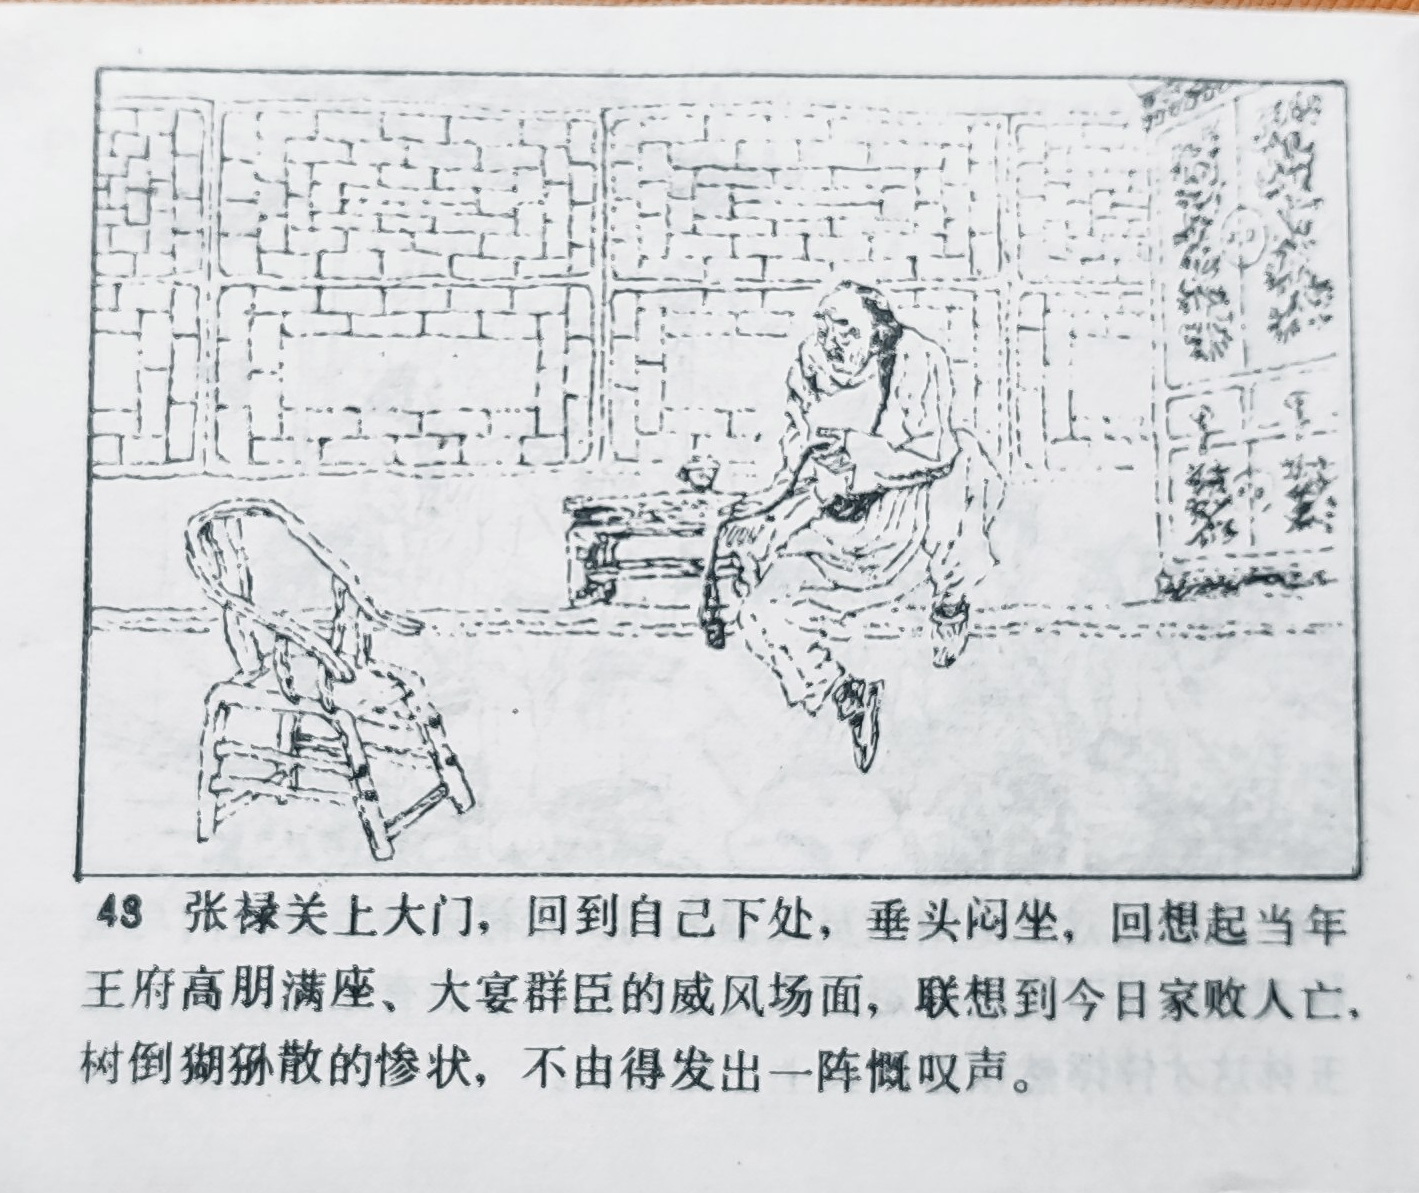 43 张禄关上大门，回到自己下处，垂头闷坐，回想起当年
王府高朋满座、大宴群臣的威风场面，联想到今日家败人亡，
树倒猢狲散的惨状，不由得发出一阵慨叹声。